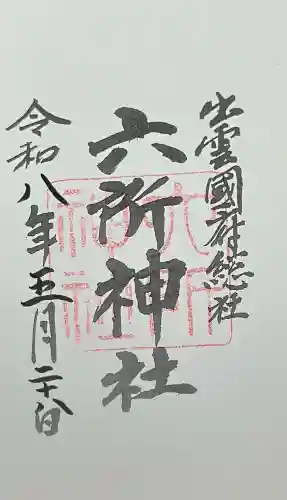 出雲國府総社
六所神社
令和八年五月二十八日
六所神社